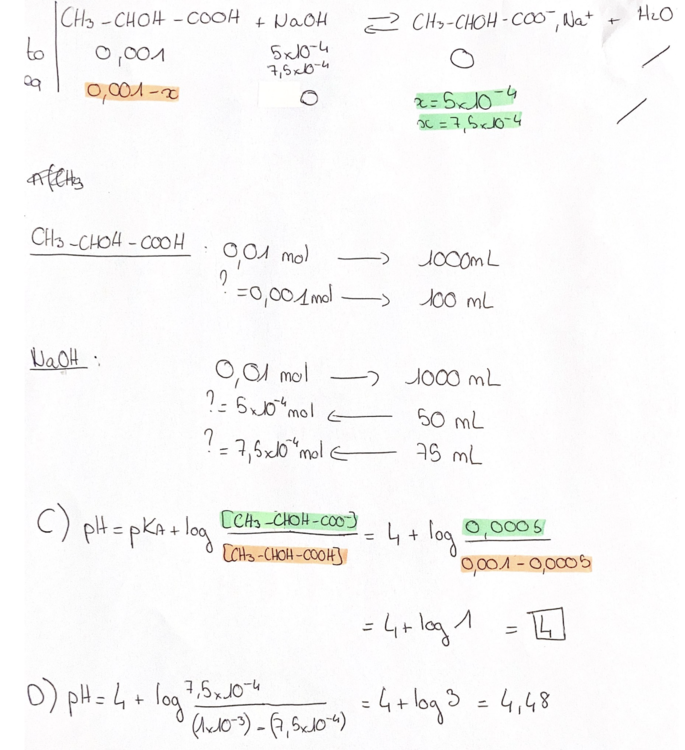 CH3-CHOH-COOH + NaOH ⇌ CH3-CHOH-COO⁻,Na⁺ + H2O
to 0,001 5x10⁻⁴ 0 /
7,5x10⁻⁴
éq 0,001-x 0 x=5x10⁻⁴ /
x=7,5x10⁻⁴
CH3-CHOH-COOH : 0,01 mol → 1000mL
? =0,001mol → 100 mL
NaOH : 0,01 mol → 1000 mL
? = 5x10⁻⁴mol ← 50 mL
? = 7,5x10⁻⁴mol ← 75 mL
C) pH = pKA + log [CH3-CHOH-COO⁻]/[CH3-CHOH-COOH] = 4 + log 0,0005/0,001-0,0005
= 4 + log 1 = 4
D) pH = 4 + log 7,5x10⁻⁴/(1x10⁻³)-(7,5x10⁻⁴) = 4 + log 3 = 4,48